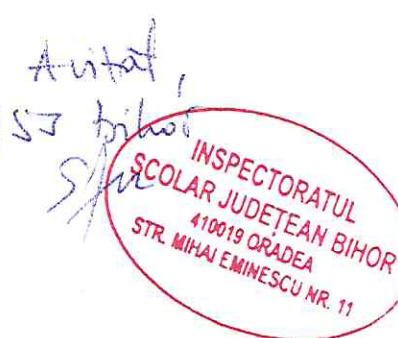 Avizat,
ISJ Bihor
INSPECTORATUL
ȘCOLAR JUDEȚEAN BIHOR
410019 ORADEA
STR. MIHAI EMINESCU NR. 11